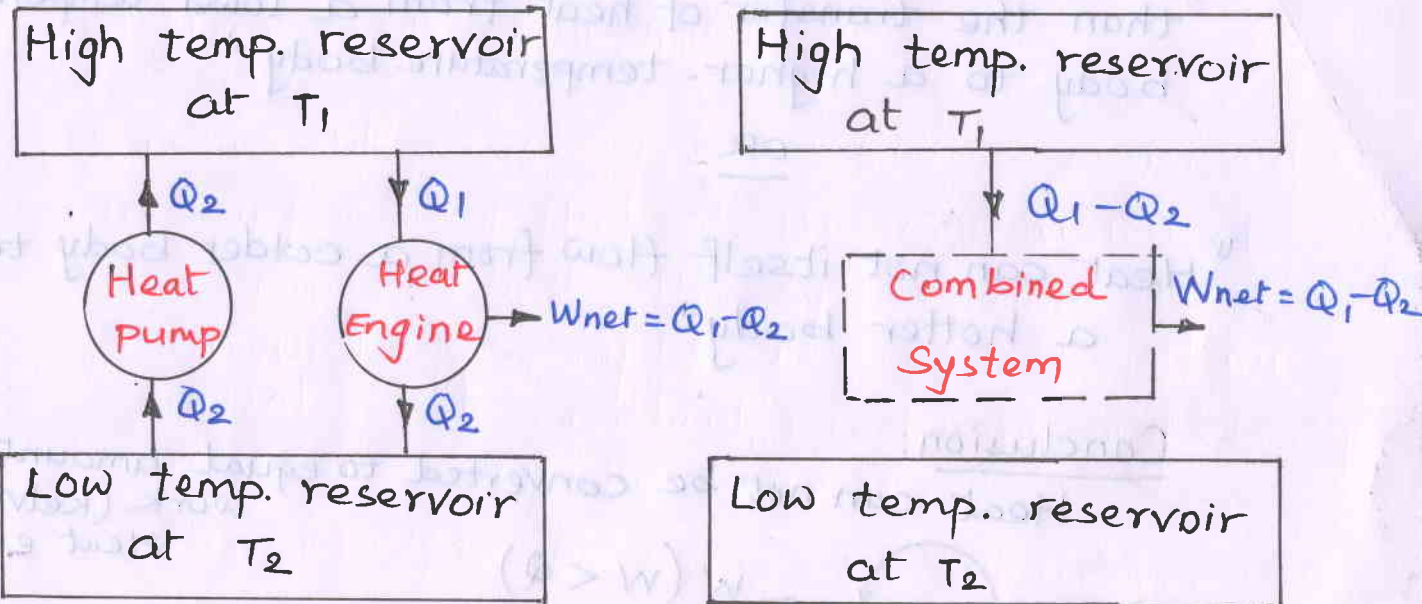 High temp. reservoir
at T1
Q2
Q1
Heat
pump
Heat
Engine
Wnet = Q1-Q2
Q2
Q2
Low temp. reservoir
at T2
High temp. reservoir
at T1
Q1-Q2
Combined
System
Wnet = Q1-Q2
Low temp. reservoir
at T2